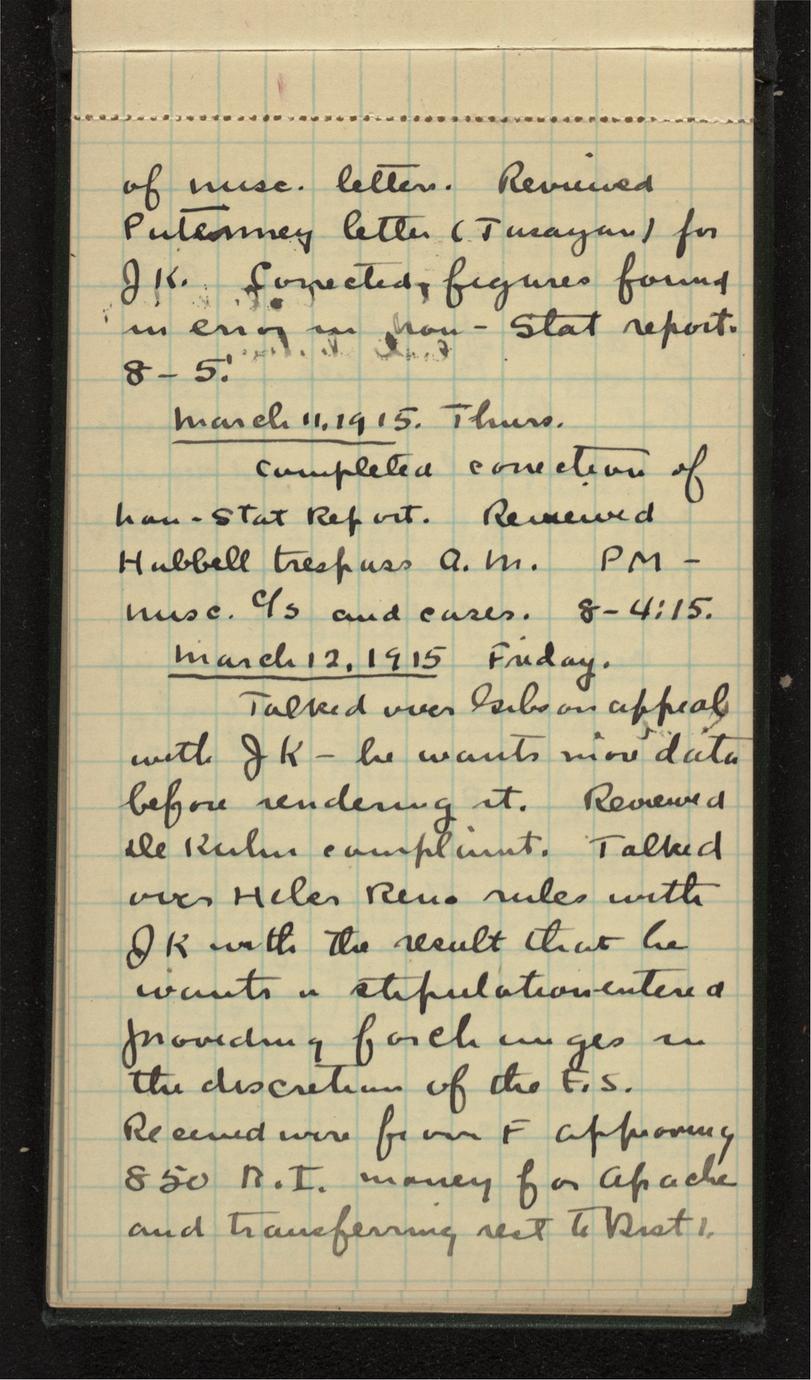 of misc. letters. Reviewed
letter (Tusayan) for
JK. Corrected, figures found
in error in Non-Stat report.
8-5.
March 11, 1915. Thurs.
Completed correction of
Non-Stat Report. Reviewed
Hubbell trespass A.M. PM -
misc. c/s and cases. 8-4:15.
March 12, 1915 Friday.
Talked over Gibson appeal
with JK - he wants more data
before rendering it. Reviewed
De Kuhn complaint. Talked
over Heber Reno rules with
JK with the result that he
wants a stipulation entered
providing for changes in
the discretion of the F.S.
Received wire from F approving
850 R.I. money for Apache
and transferring rest to Dist 1.